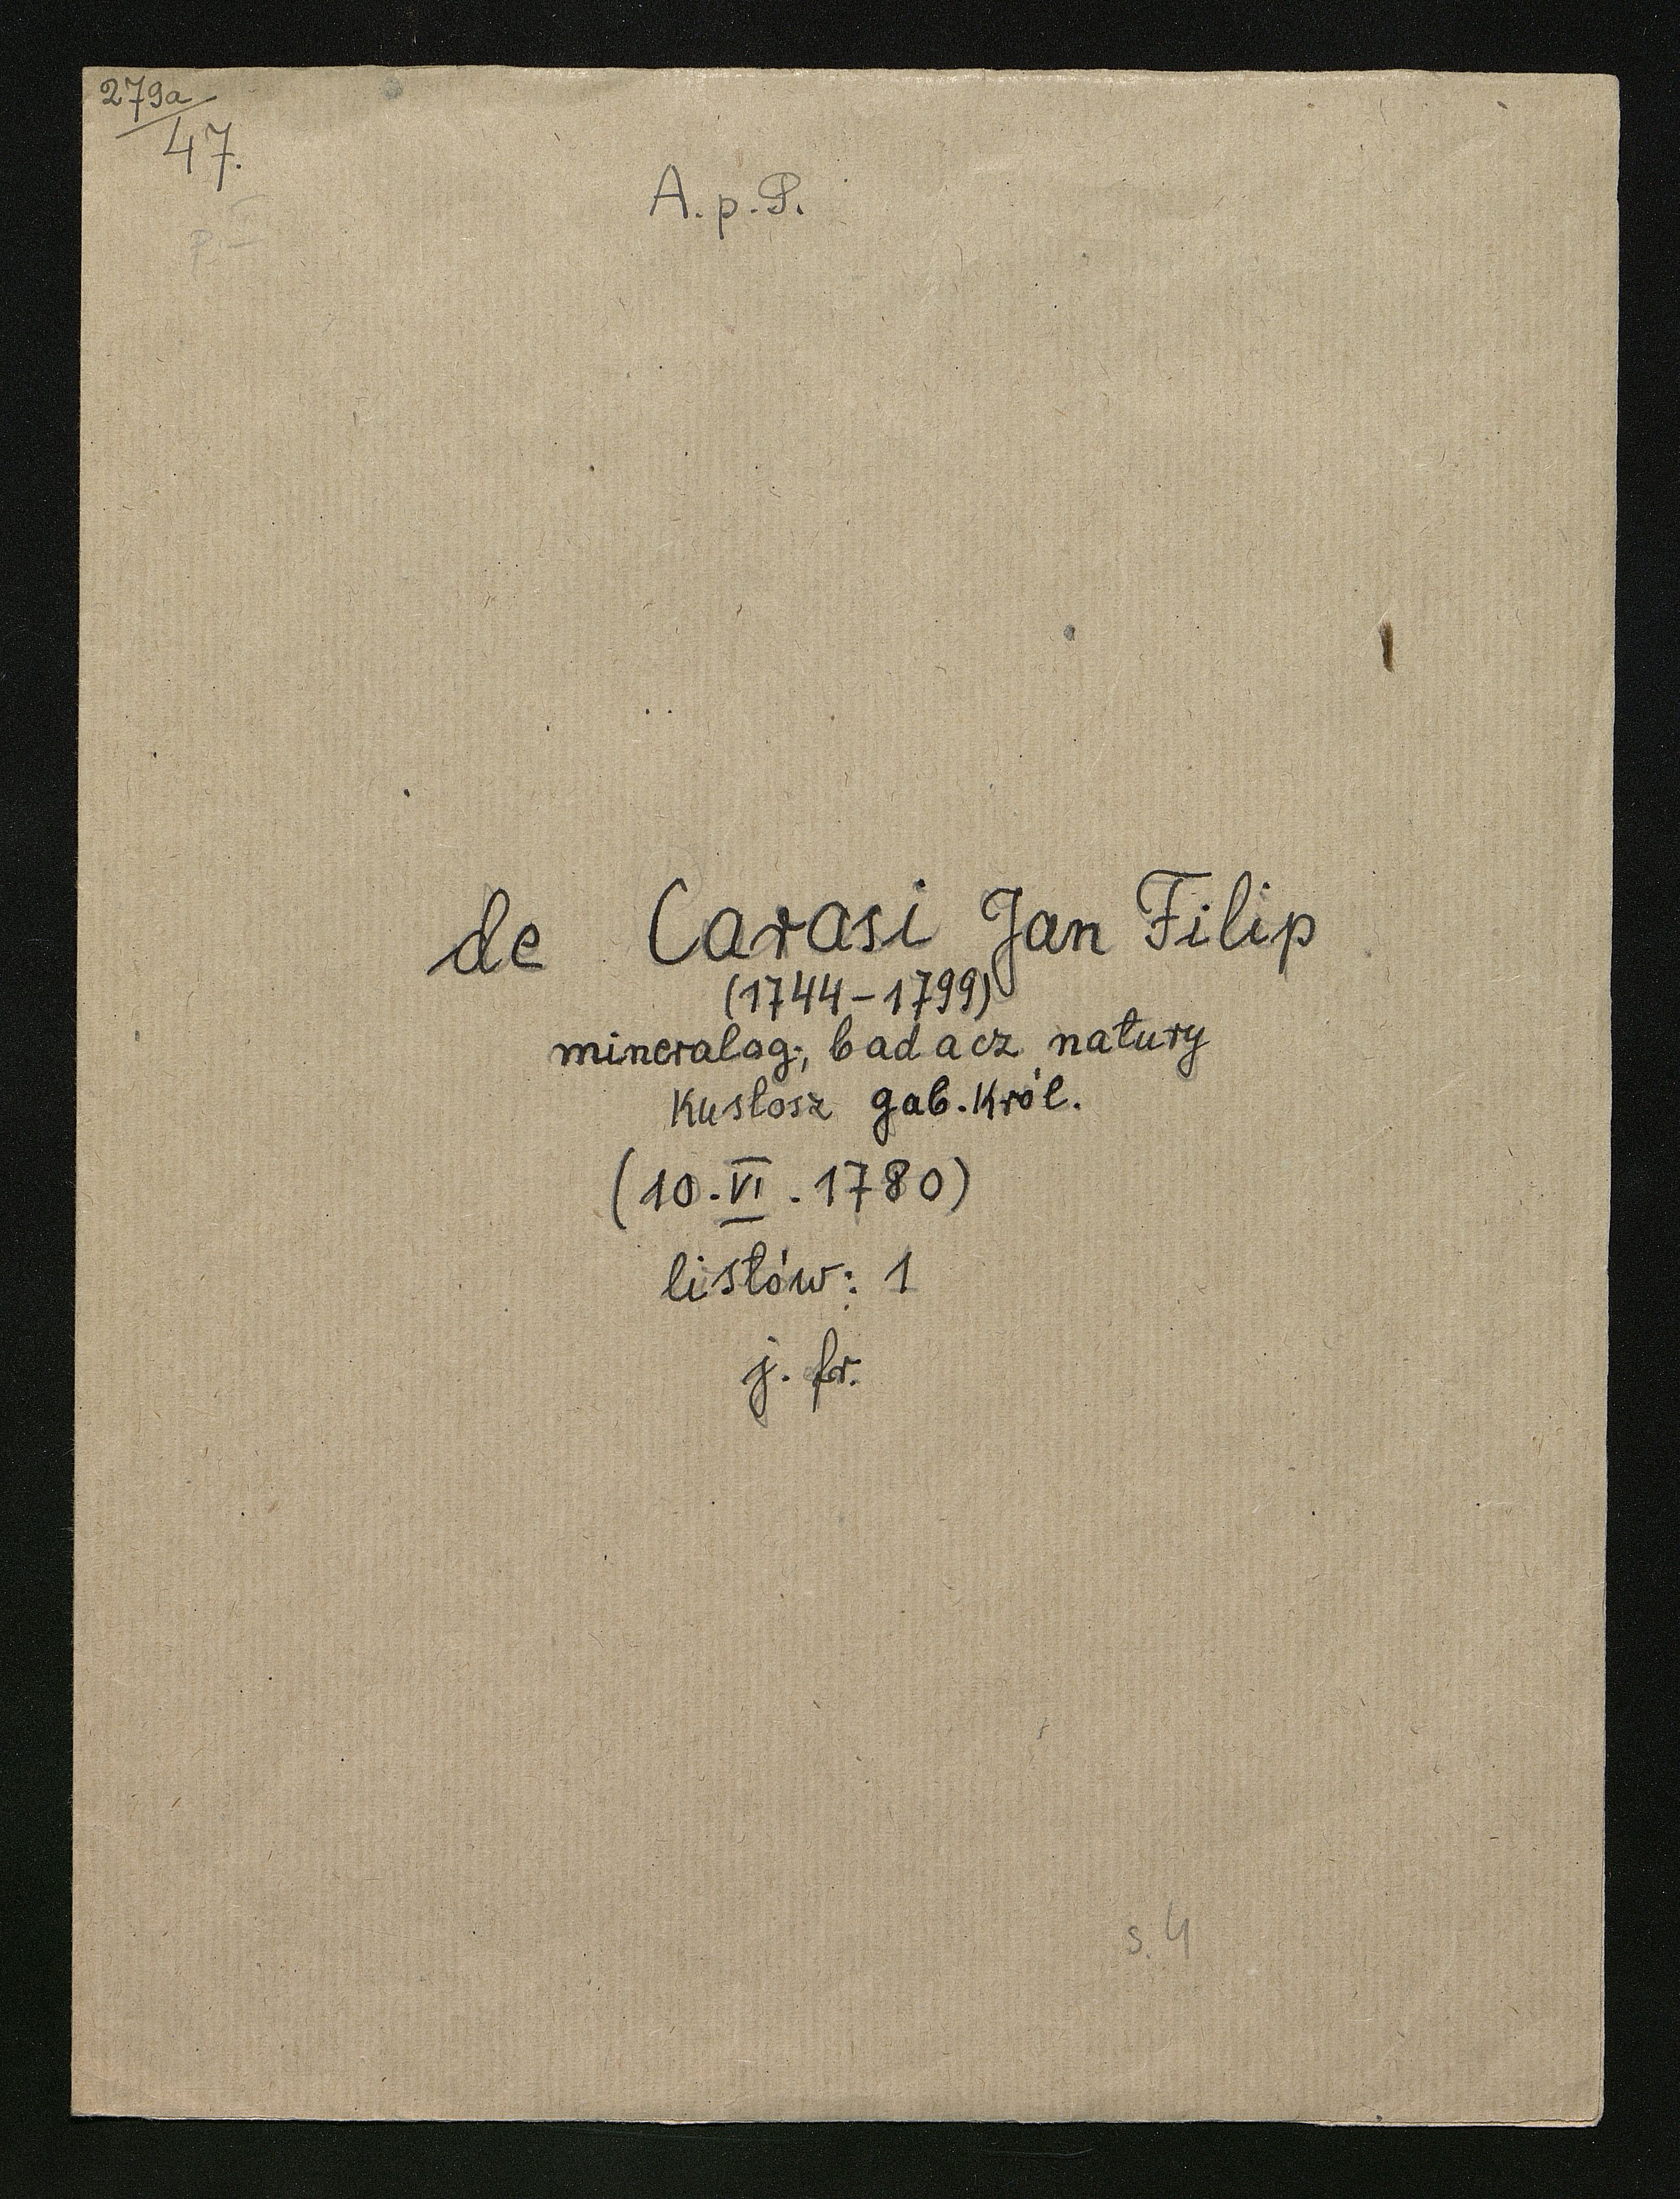 279a
47.
A. p. P.
de Carasi Jan Filip
(1744-1799)
mineralog; badacz natury
Kustosz gab. Król.
(10. VI. 1780)
listów: 1
j. fr.
s. 4